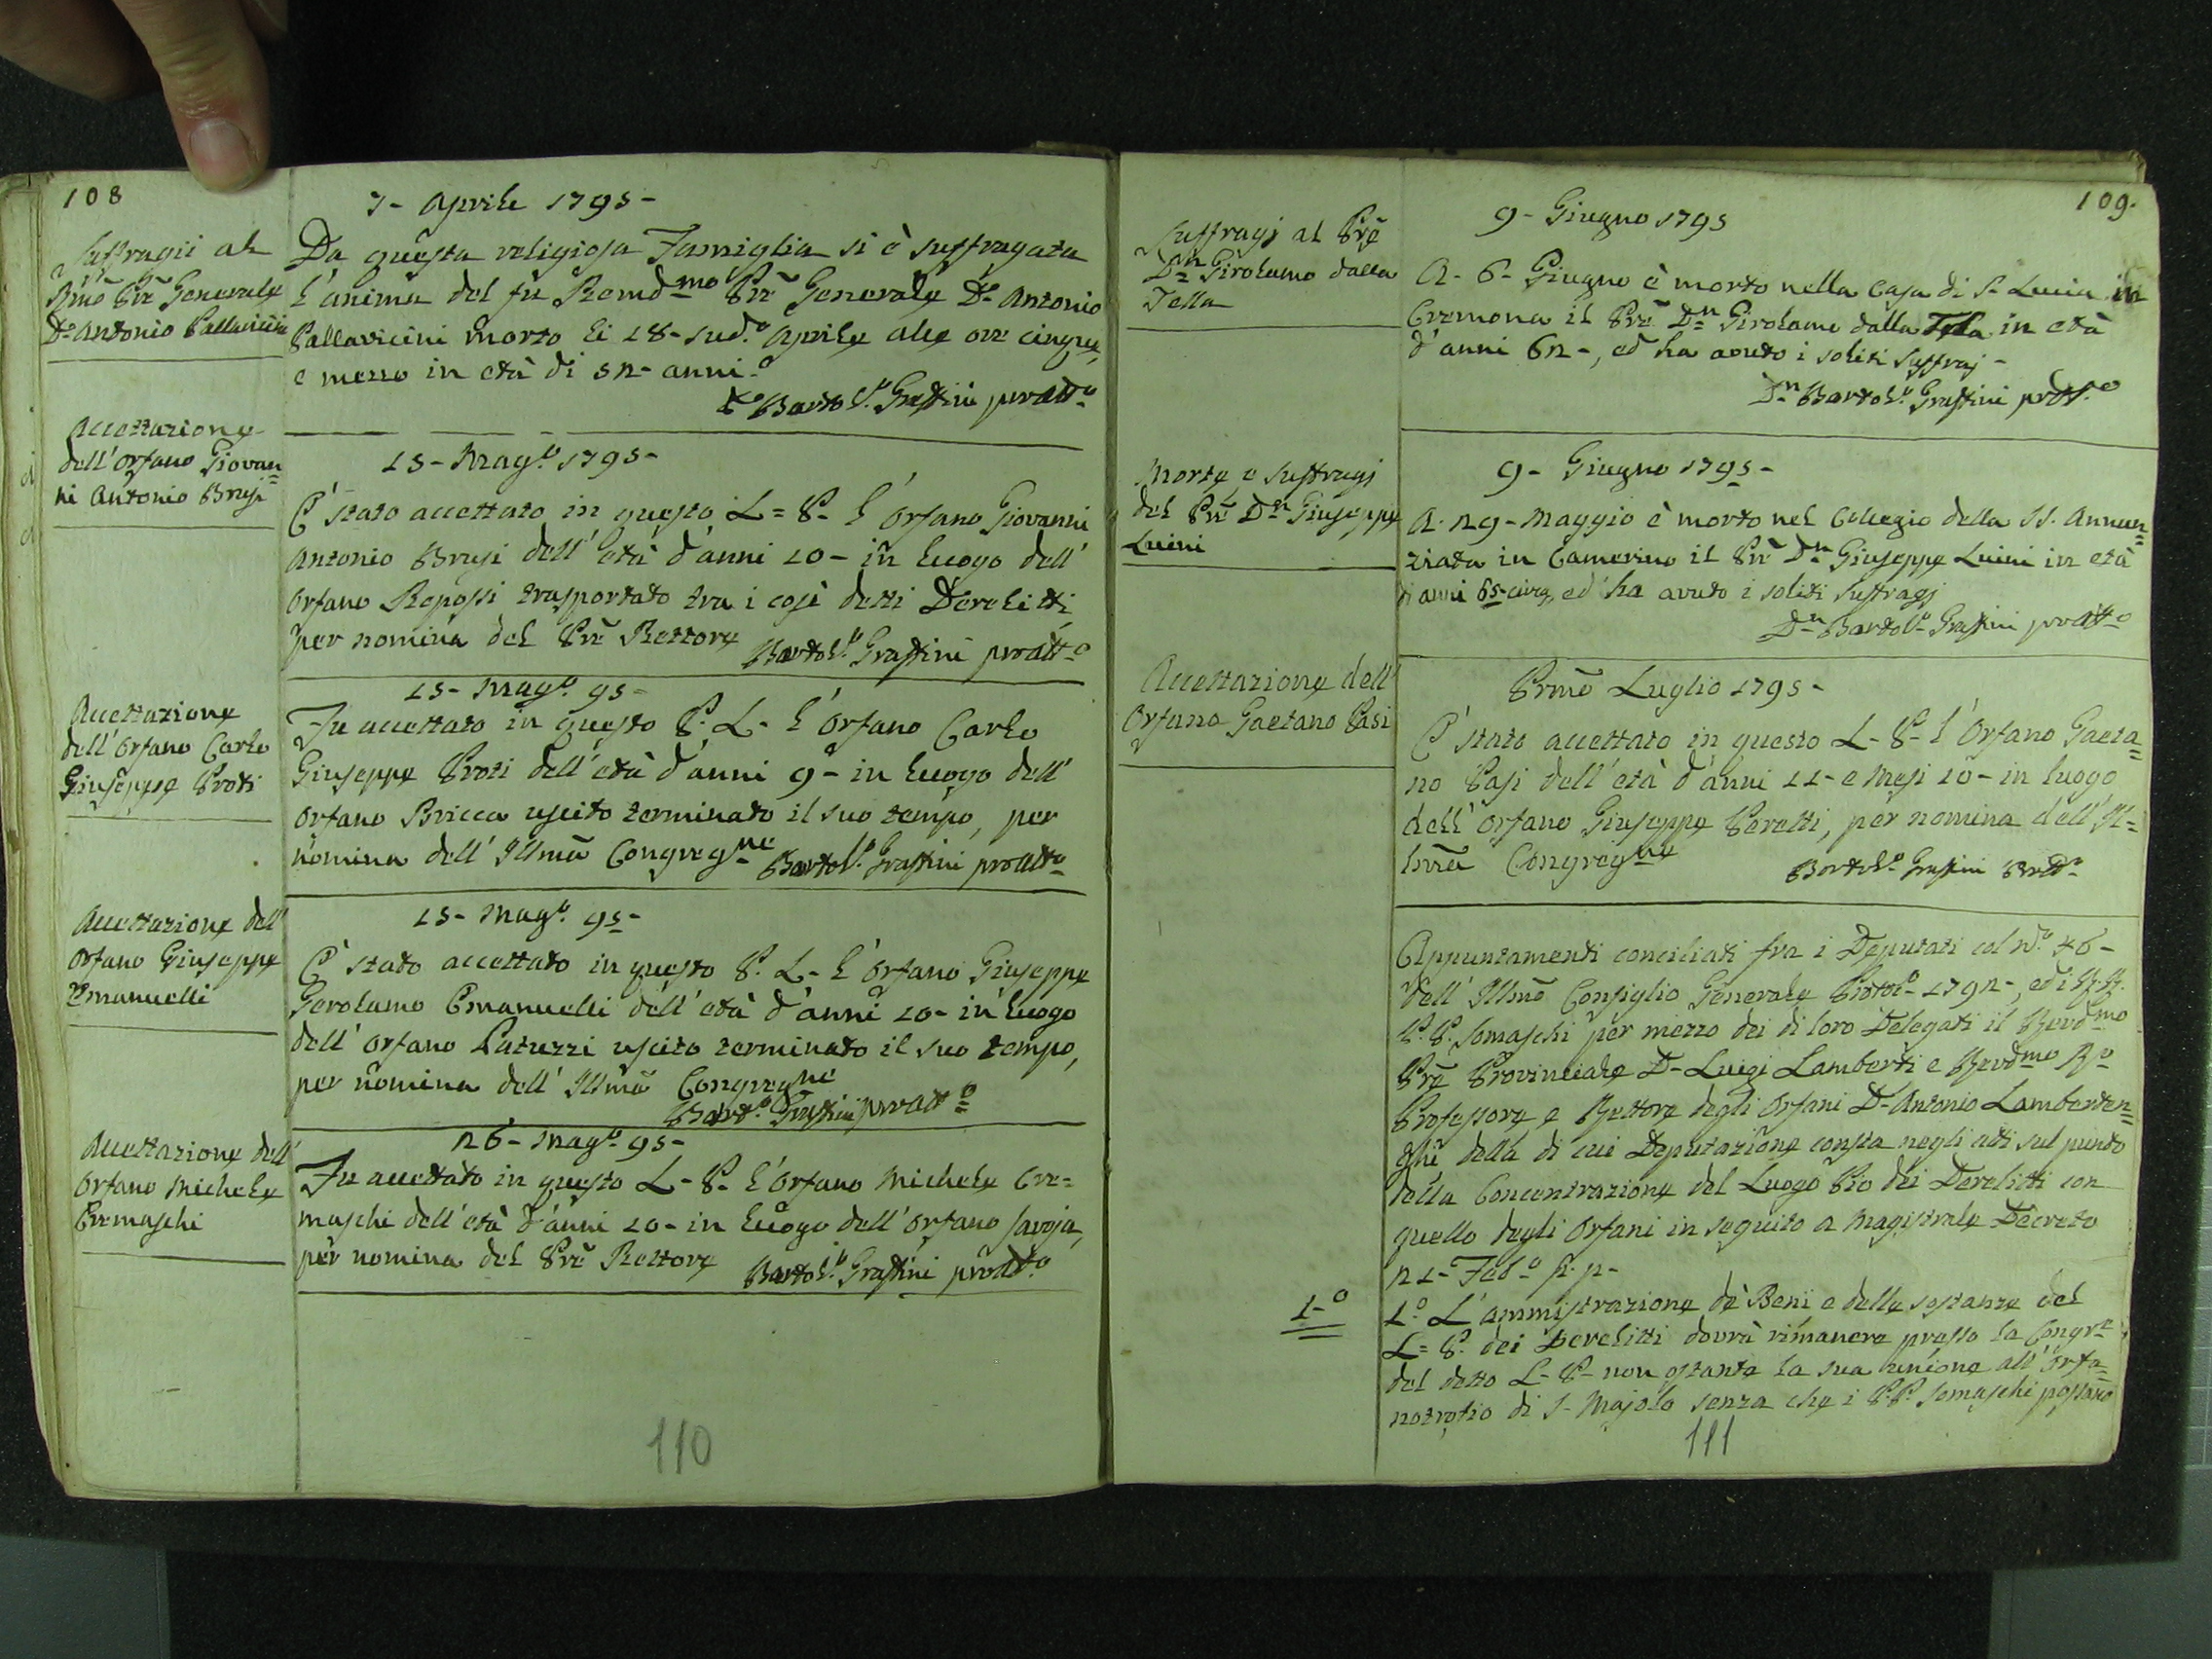 108
7- Aprile 1795-
Suffragii al
Rmo Prē Generale
Dn Antonio Pallavicini
Da questa religiosa Famiglia si è suffragata
l'anima del fu Remd.mo Prē Generale Dn Antonio
Pallavicini morto li 18- sud.o Aprile alle ore cinque,
e mezzo in età di 52- anni-
Dn Bartol.o Grassini proatt.o
Accettazione
dell'orfano Giovan=
ni Antonio Brusi
15- Mag.o 1795-
E' stato accettato in questo L= P- l'orfano Giovanni
Antonio Brusi dell'età d'anni 10- in luogo dell'
orfano Repossi trasportato tra i così detti Derelitti,
per nomina del Prē Rettore
Bartol.o Grassini proatt.o
Accettazione
dell'orfano Carlo
Giuseppe Proti
15- Mag.o 95-
Fu accettato in questo P. L- l'orfano Carlo
Giuseppe Proti dell'età d'anni 9- in luogo dell'
orfano Bricca uscito terminato il suo tempo, per
nomina dell'Illmā Congreg.ne Bartol.o Grassini proatt.o
Accettazione dell'
orfano Giuseppe
Emanuelli
15- Mag.o 95-
E' stato accettato in questo P. L- l'orfano Giuseppe
Gerolamo Emanuelli dell'età d'anni 10- in luogo
dell'orfano Patuzzi uscito terminato il suo tempo,
per nomina dell'Illmā Congreg.ne
Bart.o Grassini proatt.o
Accettazione dell'
orfano Michele
Cremaschi
26- Mag.o 95-
Fu accettato in questo L- P- l'orfano Michele Cre=
maschi dell'età d'anni 10- in luogo dell'orfano Savoja,
per nomina del Prē Rettore Bartol.o Grassini proatt.o
110
109.
Suffragj al Prē
Dn Girolamo dalla
Tella
9- Giugno 1795
A- 6- Giugno è morto nella Casa di S- Lucia in
Cremona il Prē Dn Girolamo dalla Tela in età
d'anni 62-, ed ha avuto i soliti suffraj-
Dn Bartol.o Grassini proatt.o
Morte, e suffragj
del Prē Dn Giuseppe
Luini
9- Giugno 1795-
A- 29- Maggio è morto nel Collegio della SS. Annun=
ziata in Camerino il Prē Dn Giuseppe Luini in età
di anni 65- circa, ed ha avuto i soliti suffragj
Dn Bartol.o Grassini proatt.o
Accettazione dell'
Orfano Gaetano Pasi
Prmo Luglio 1795-
E' stato accettato in questo L- P- l'Orfano Gaeta=
no Pasi dell'età d'anni 11- e mesi 10- in luogo
dell'orfano Giuseppe Peretti, per nomina dell'Il=
lmā Congreg.ne
Bortol.o Grassini
Appuntamenti conciliati fra i Deputati col N.o 46-
dell'Illmō Consiglio Generale Protoc- 1792-, ed i RR.
P.P. Somaschi per mezzo dei di loro Delegati il Revd.mo
Prē Provinciale D- Luigi Lamberti e Revd.mo
Professore e Rettore degli Orfani D- Antonio Lamberten=
ghi, della di cui Deputazione consta negli atti sul punto
della Concentrazione del Luogo Pio dei Derelitti con
quello degli Orfani in seguito a Magistrale Decreto
21- Feb.o p. p-
1-o
1.o L'ammistrazione de' Beni e delle sostanze del
L= P. dei Derelitti dovrà rimanere presso la Congr.e
del detto L- P- non ostante la sua unione all'Orfa=
notrofio di S- Majolo senza che i P.P. Somaschi possano
111